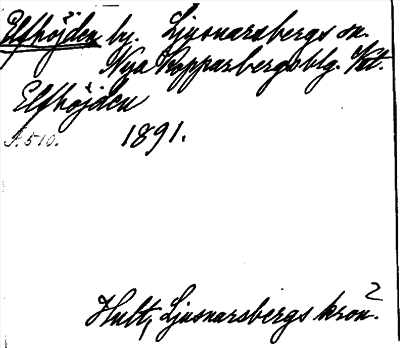 Elfhöjden by. Ljusnarsbergs sn.
Nya Kopparbergsblg. Kt.
Elfhöjden
S. 510. 1891.
Hult, Ljusnarsbergs krön.²